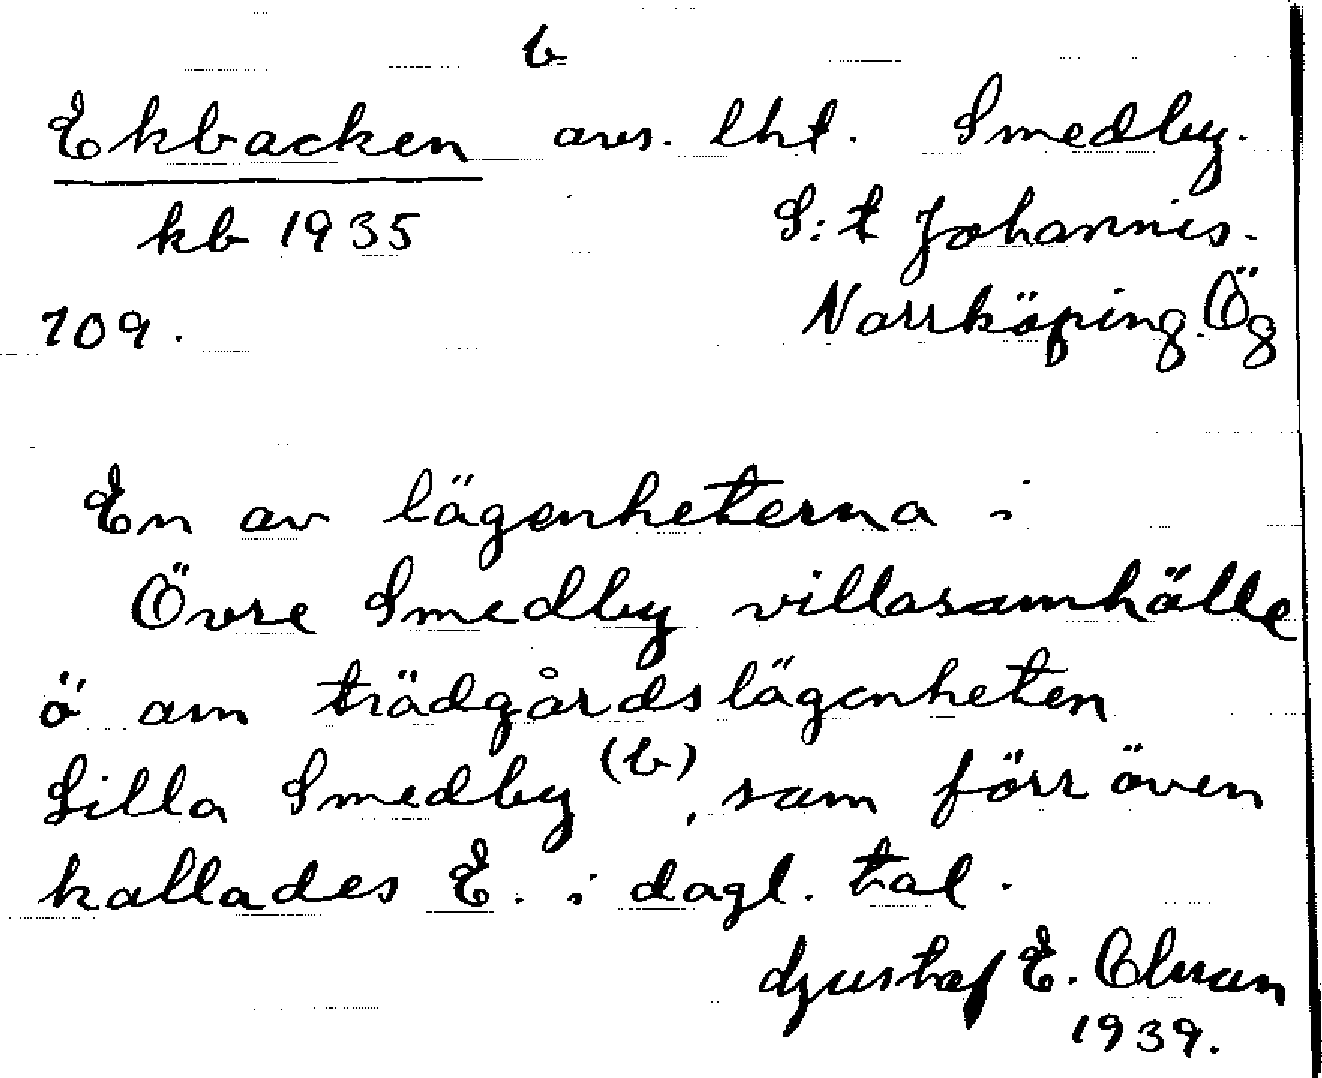 b
Ekbacken avs. lht. Smedby.
kb 1935 S:t Johannis.
709. Norrköping. Ög
En av lägenheterna i
Övre Smedby villasamhälle
ö om trädgårdslägenheten
Lilla Smedby (b), som förr även
kallades E. i dagl. tal.
Gustaf E. Olsson
1939.